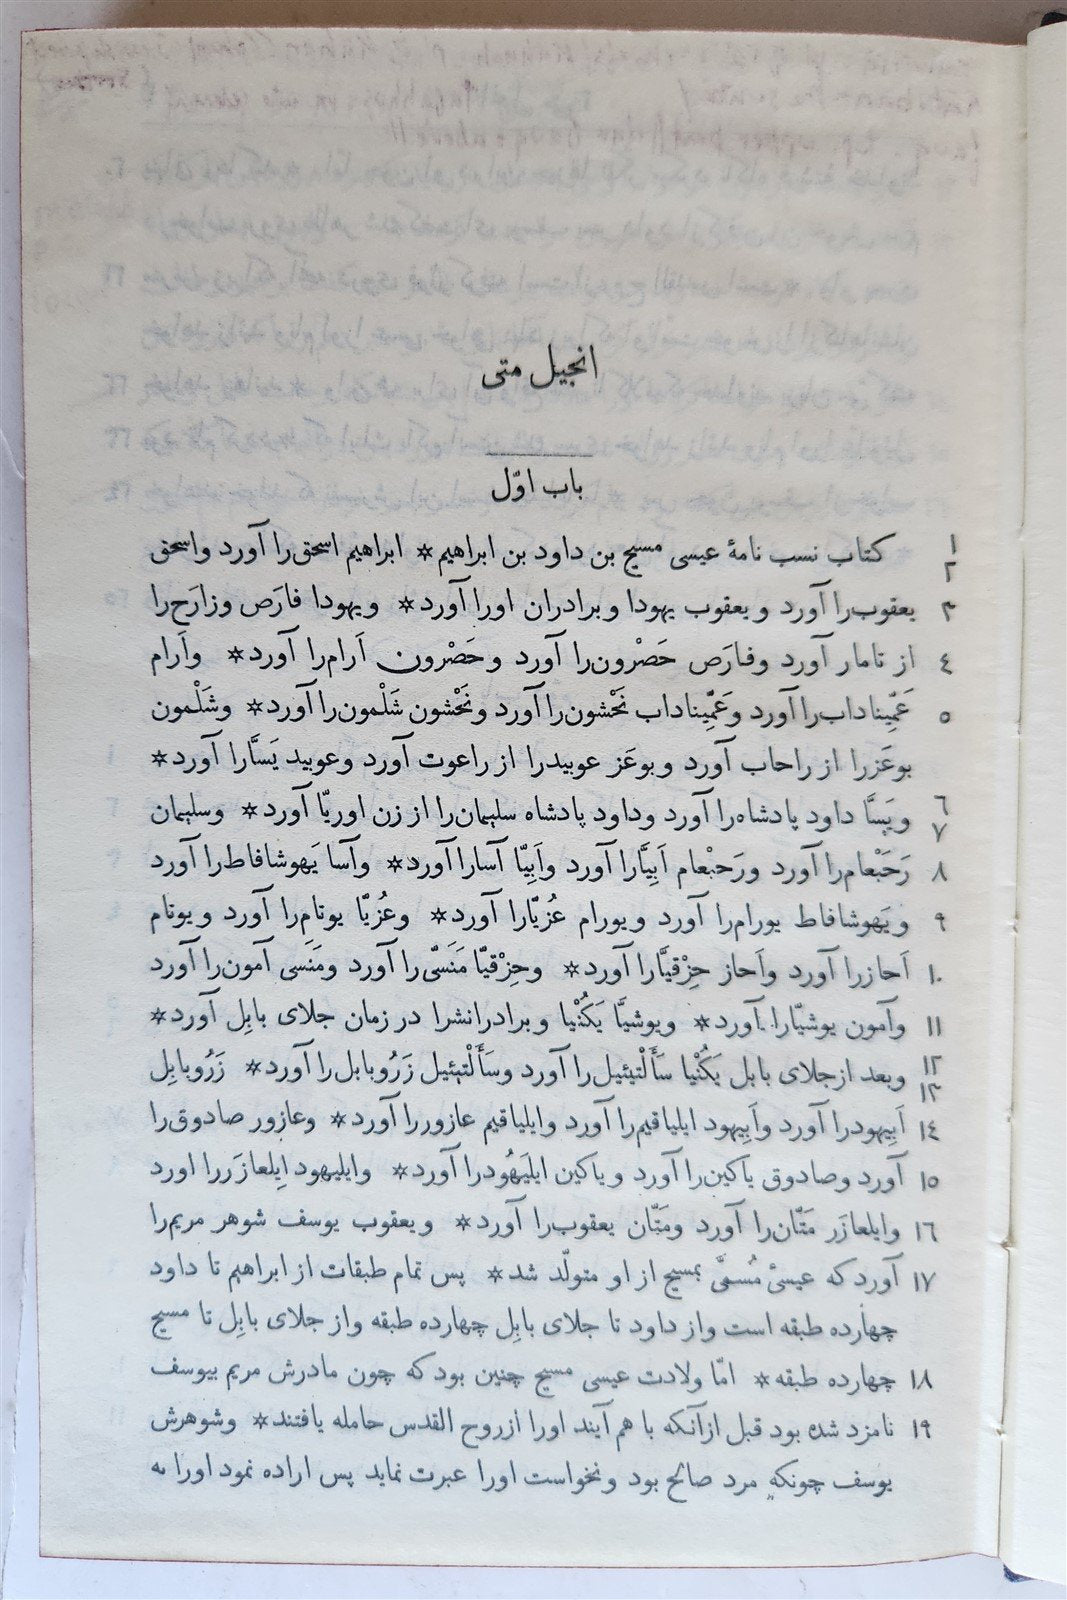 انجیل متی
باب اوّل
۱ کتاب نسب نامهٔ عیسی مسیح بن داود بن ابراهیم✡ ابراهیم اسحق‌را آورد واسحق
۲
۳ یعقوب‌را آورد ویعقوب یهودا وبرادران اورا آورد✡ ویهودا فارَص وزارَح‌را
٤ از تامار آورد وفارَص حَصْرون‌را آورد وحَصْرون اَرام‌را آورد✡ واَرام
٥ عَمِّیناداب‌را آورد وعَمِّیناداب نَحْشون‌را آورد ونَحْشون شَلْمون‌را آورد✡ وشَلْمون
بوعَزرا از راحاب آورد وبوعَز عوبیدرا از راعوت آورد وعوبید یَسَّارا آورد✡
٦ ویَسَّا داود پادشاه‌را آورد وداود پادشاه سلیمان‌را از زن اوریّا آورد✡ وسلیمان
۷
۸ رَحَبْعام‌را آورد ورَحَبْعام اَبِیَّارا آورد واَبِیّا آسارا آورد✡ وآسا یَهوشافاط‌را آورد
۹ ویَهوشافاط یورام‌را آورد ویورام عُزیّارا آورد✡ وعُزیّا یوتام‌را آورد ویوتام
۱۰ اَحازرا آورد واَحاز حِزْقیَّارا آورد✡ وحِزْقیّا مَنَسّی‌را آورد ومَنَسی آمون‌را آورد
۱۱ وآمون یوشیّارا آورد✡ ویوشیَّا یَکُنْیا وبرادرانشرا در زمان جلای بابِل آورد✡
۱۲ وبعد ازجلای بابل یَکُنْیا سَأَلْتیئیل‌را آورد وسَأَلْتیئیل زَرُوبابل‌را آورد✡ زَرُوبابِل
۱۳
۱٤ اَبِیهودرا آورد واَبِیهود ایلیاقیم‌را آورد وایلیاقیم عازوررا آورد✡ وعازور صادوق‌را
۱٥ آورد وصادوق یاکین‌را آورد ویاکین ایلَیهُودرا آورد✡ وایلیهود اِیلعازَررا اورد
۱٦ وایلعازَر مَتّان‌را آورد ومَتّان یعقوب‌را آورد✡ ویعقوب یوسف شوهر مریم‌را
۱۷ آورد که عیسیٔ مُسمّیٰ بمسیح از او متولّد شد✡ پس تمام طبقات از ابراهیم تا داود
چهارده طبقه است واز داود تا جلای بابِل چهارده طبقه واز جلای بابِل تا مسیح
۱۸ چهارده طبقه✡ امّا ولادت عیسی مسیح چنین بود که چون مادرش مریم بیوسف
۱۹ نامزد شده بود قبل ازآنکه با هم آیند اورا ازروح القدس حامله یافتند✡ وشوهرش
یوسف چونکه مرد صالح بود ونخواست اورا عبرت نماید پس اراده نمود اورا به